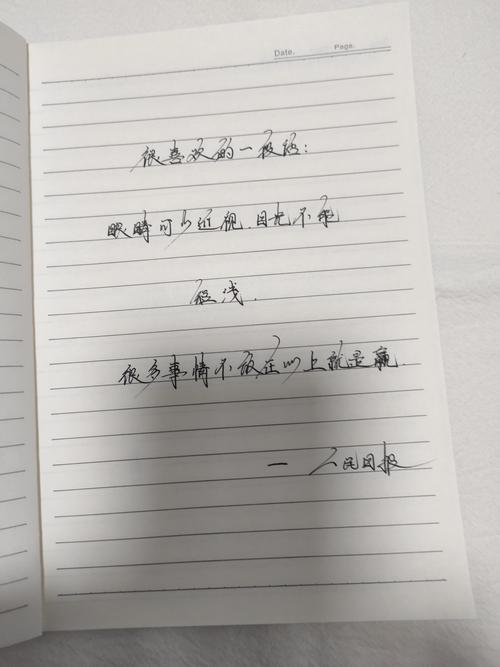 Date. Page.
很喜欢的一段话:
眼睛可以近视.目光不能
短浅.
很多事情不放在心上就是赢.
— 人民日报